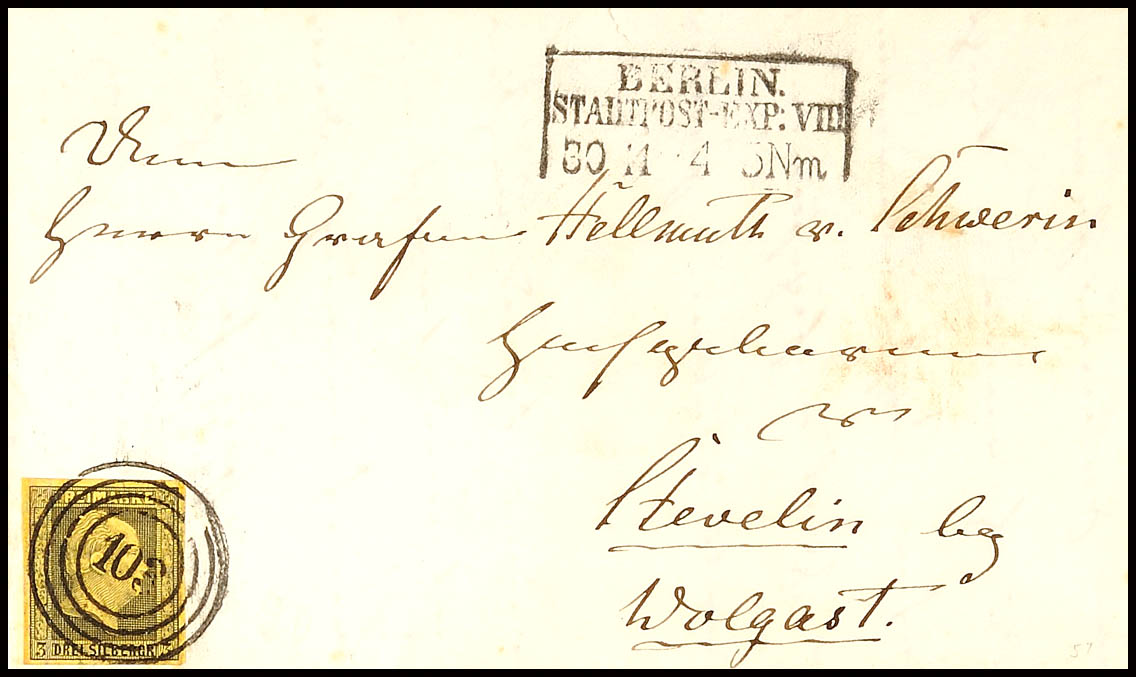 BERLIN.
STADTPOST-EXP: VIII
30 11 4 5Nm
Dem
Herrn Grafen Hellmuth v. Schwerin
Hochgeboren
zu
Stevelin bey
Wolgast.
103
3 DREI SILBERGR. 3
57